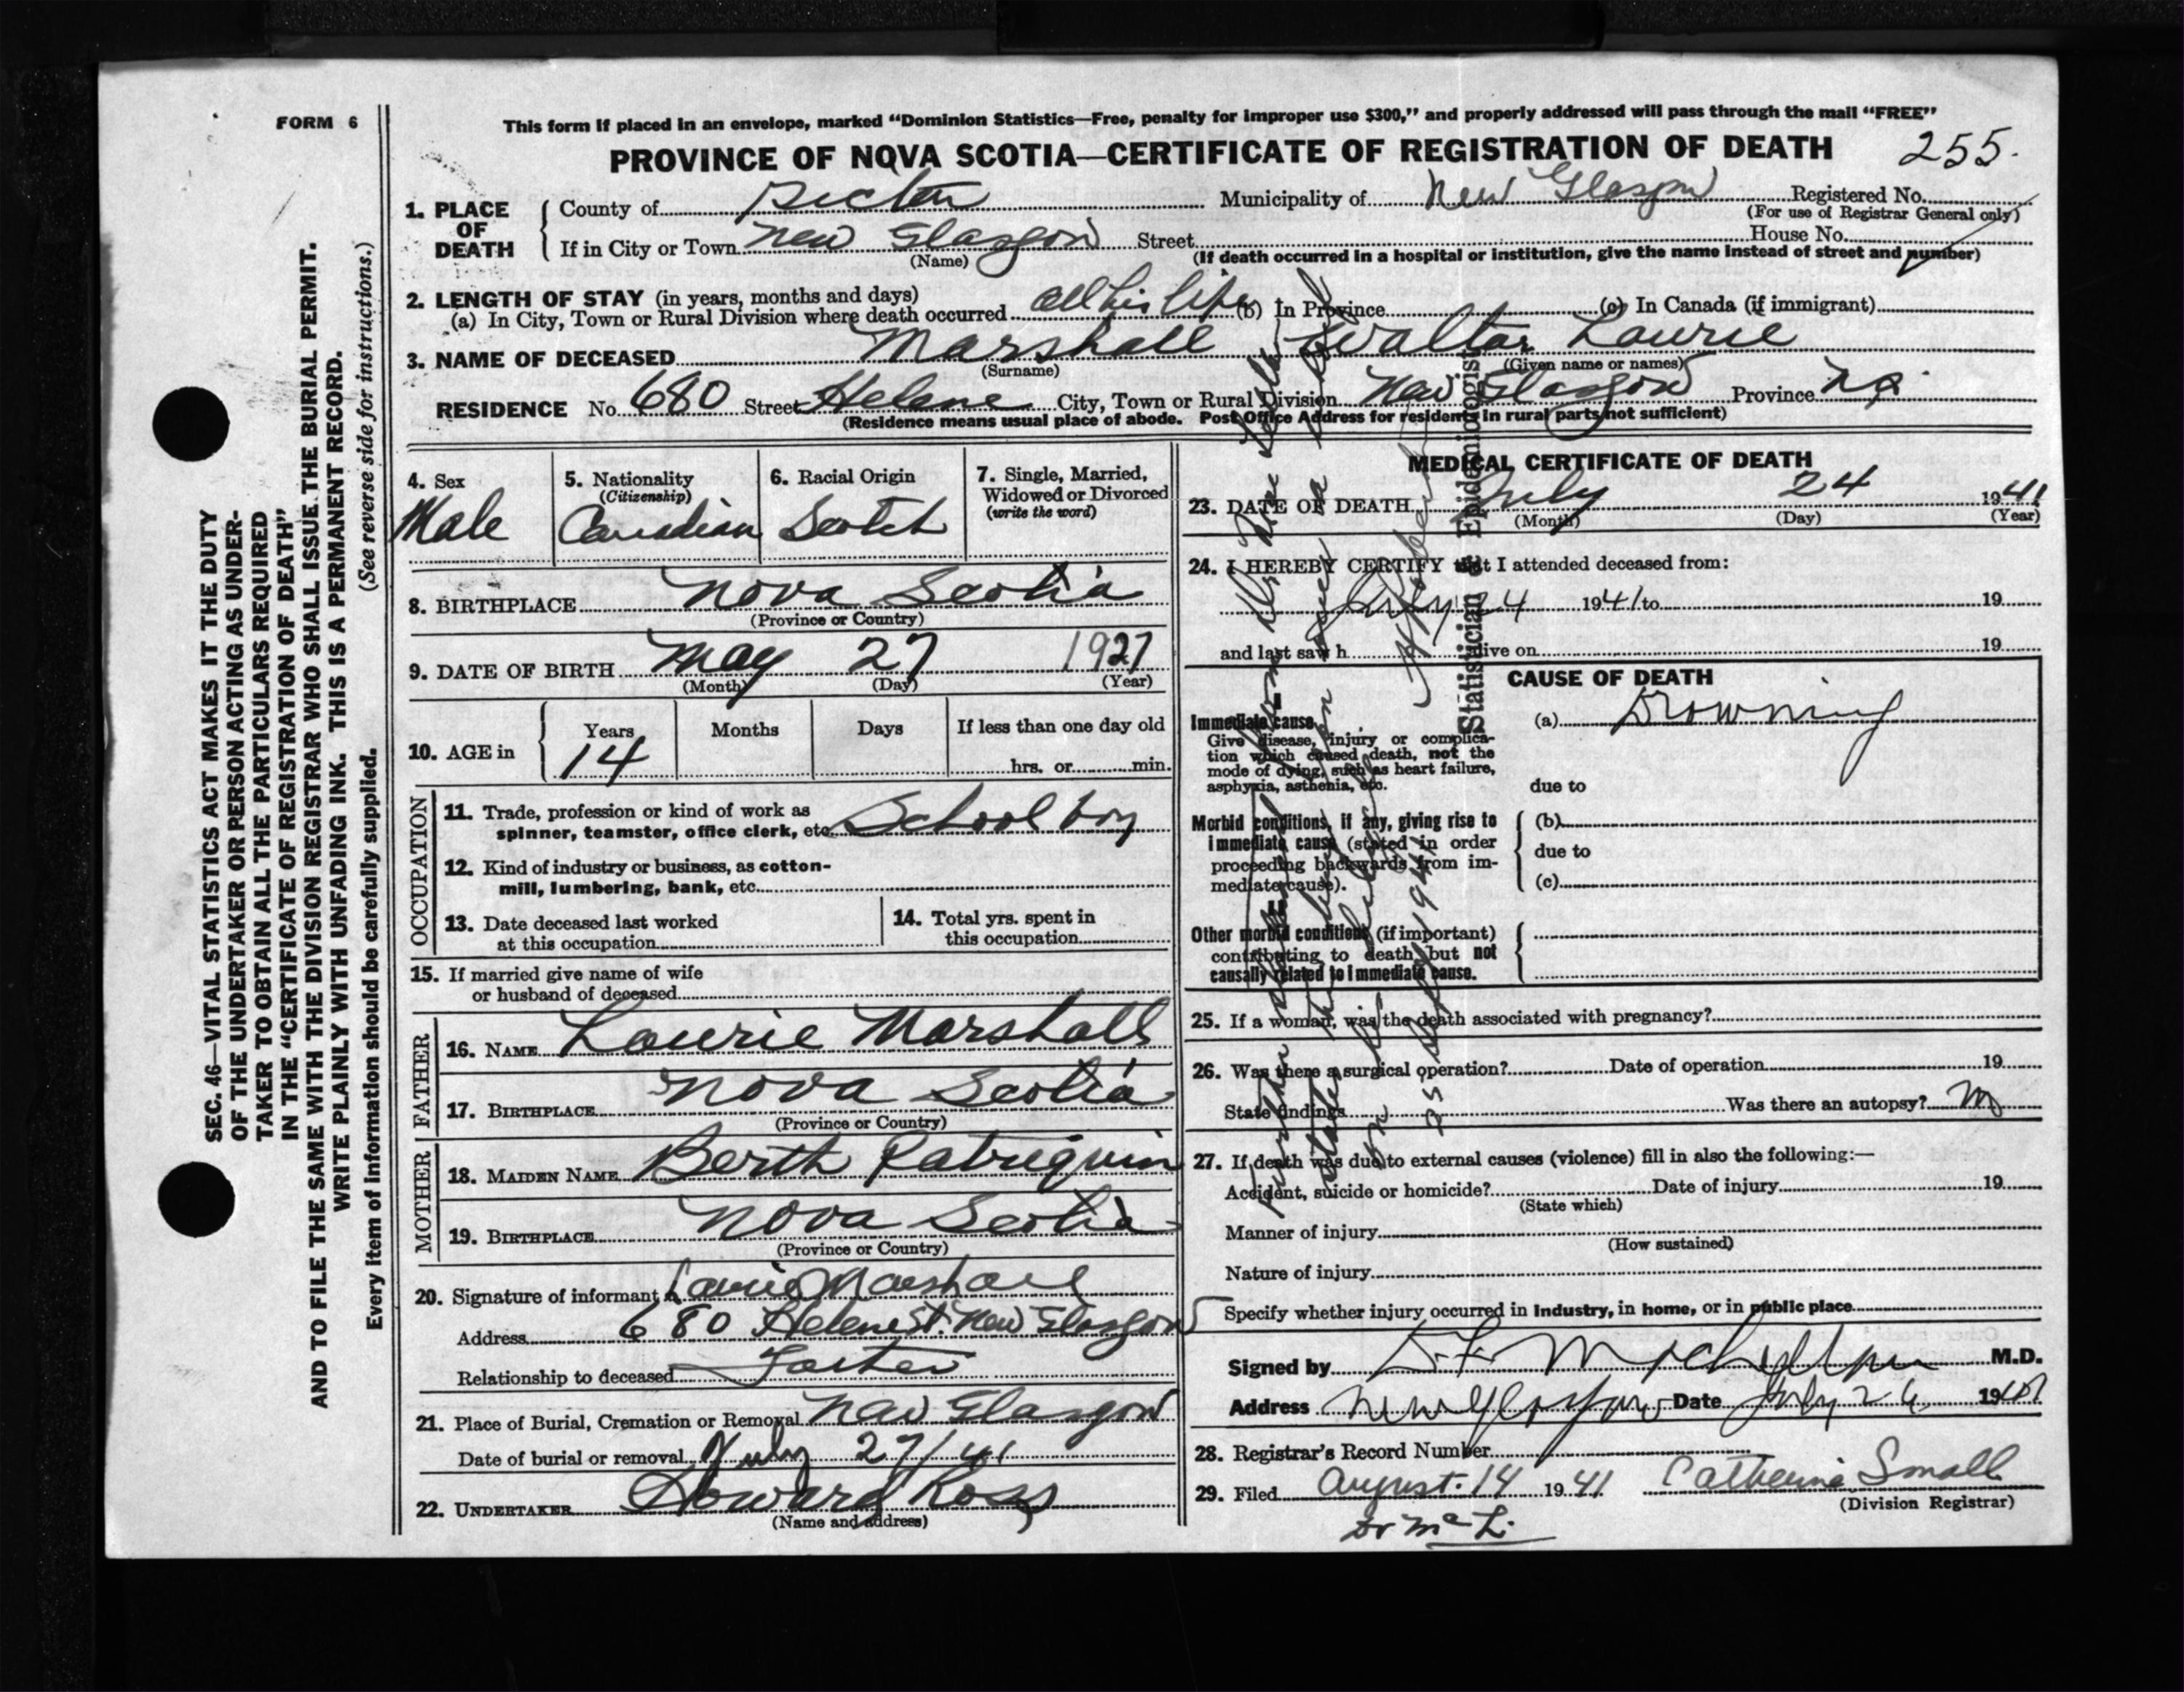 FORM 6
This form if placed in an envelope, marked “Dominion Statistics—Free, penalty for improper use $300,” and properly addressed will pass through the mail “FREE”
PROVINCE OF NOVA SCOTIA—CERTIFICATE OF REGISTRATION OF DEATH 255.
1. PLACE OF DEATH
County of Pictou Municipality of New Glasgow Registered No.
(For use of Registrar General only)
If in City or Town New Glasgow Street House No.
(Name) (If death occurred in a hospital or institution, give the name instead of street and number)
2. LENGTH OF STAY (in years, months and days)
(a) In City, Town or Rural Division where death occurred all his life (b) In Province (c) In Canada (if immigrant)
3. NAME OF DECEASED Marshall Walter Laurie
(Surname) (Given name or names)
RESIDENCE No. 680 Street Helene City, Town or Rural Division New Glasgow Province N.S.
(Residence means usual place of abode. Post Office Address for residents in rural parts not sufficient)
4. Sex
Male
5. Nationality
(Citizenship)
Canadian
6. Racial Origin
Scotch
7. Single, Married,
Widowed or Divorced
(write the word)
8. BIRTHPLACE Nova Scotia
(Province or Country)
9. DATE OF BIRTH May 27 1927
(Month) (Day) (Year)
10. AGE in Years Months Days If less than one day old
14 hrs. or min.
OCCUPATION
11. Trade, profession or kind of work as
spinner, teamster, office clerk, etc. School boy
12. Kind of industry or business, as cotton-
mill, lumbering, bank, etc.
13. Date deceased last worked
at this occupation
14. Total yrs. spent in
this occupation
15. If married give name of wife
or husband of deceased
FATHER
16. NAME Laurie Marshall
17. BIRTHPLACE Nova Scotia
(Province or Country)
MOTHER
18. MAIDEN NAME Berth Patriquin
19. BIRTHPLACE Nova Scotia
(Province or Country)
20. Signature of informant Laurie Marshall
Address 680 Helene St. New Glasgow
Relationship to deceased Father
21. Place of Burial, Cremation or Removal New Glasgow
Date of burial or removal July 27/41
22. UNDERTAKER Howard Ross
(Name and address)
MEDICAL CERTIFICATE OF DEATH
23. DATE OF DEATH July 24 1941
(Month) (Day) (Year)
24. I HEREBY CERTIFY that I attended deceased from:
July 24 1941 to 19
and last saw h alive on 19
CAUSE OF DEATH
I
Immediate cause
Give disease, injury or complica-
tion which caused death, not the
mode of dying, such as heart failure,
asphyxia, asthenia, etc.
(a) Drowning
due to
Morbid conditions, if any, giving rise to
immediate cause (stated in order
proceeding backwards from im-
mediate cause).
(b)
due to
(c)
II
Other morbid conditions (if important)
contributing to death but not
causally related to immediate cause.
25. If a woman, was the death associated with pregnancy?
26. Was there a surgical operation? Date of operation 19
State findings Was there an autopsy? no
27. If death was due to external causes (violence) fill in also the following:—
Accident, suicide or homicide? Date of injury 19
(State which)
Manner of injury
(How sustained)
Nature of injury
Specify whether injury occurred in industry, in home, or in public place
Signed by M.D.
Address New Glasgow Date July 26 1941
28. Registrar's Record Number
29. Filed August. 14 1941 Catherine Small
(Division Registrar)
Dr Mc L.
Statistician & Epidemiologist
SEC. 46—VITAL STATISTICS ACT MAKES IT THE DUTY
OF THE UNDERTAKER OR PERSON ACTING AS UNDER-
TAKER TO OBTAIN ALL THE PARTICULARS REQUIRED
IN THE “CERTIFICATE OF REGISTRATION OF DEATH”
AND TO FILE THE SAME WITH THE DIVISION REGISTRAR WHO SHALL ISSUE THE BURIAL PERMIT.
WRITE PLAINLY WITH UNFADING INK. THIS IS A PERMANENT RECORD.
(See reverse side for instructions.)
Every item of information should be carefully supplied.